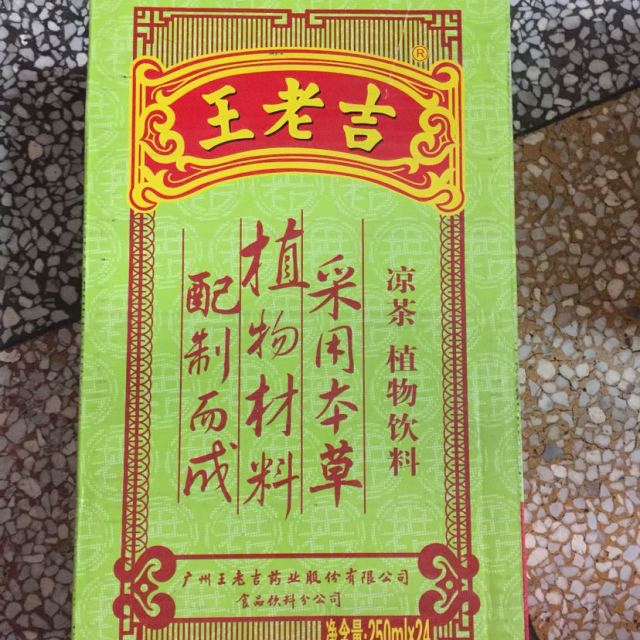 王老吉
®
凉茶 植物饮料
采用本草
植物材料
配制而成
广州王老吉药业股份有限公司
食品饮料分公司
净含量:250ml×24